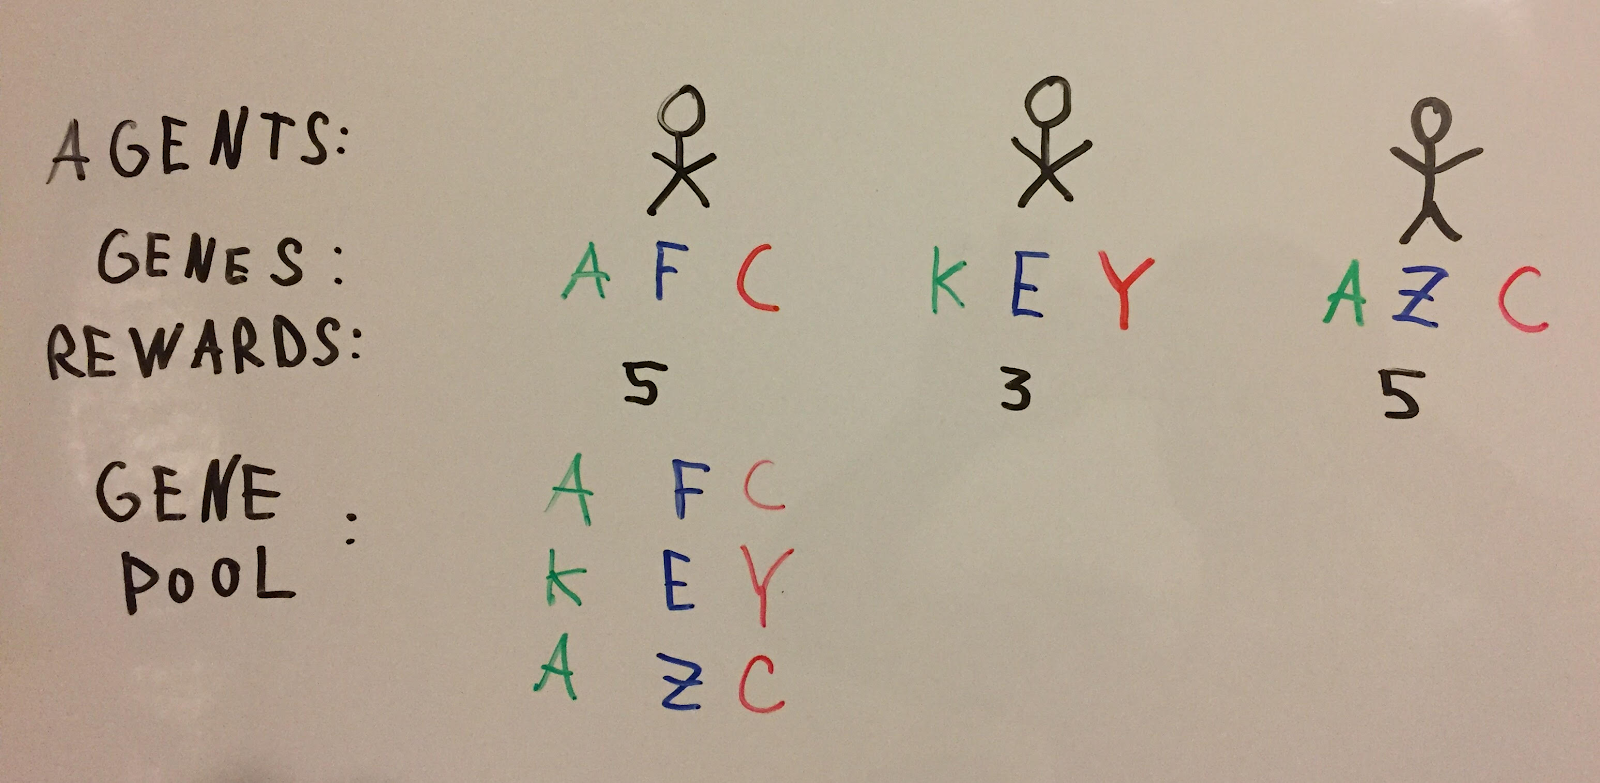 AGENTS:
GENES: A F C K E Y A Z C
REWARDS: 5 3 5
GENE POOL: A F C
K E Y
A Z C